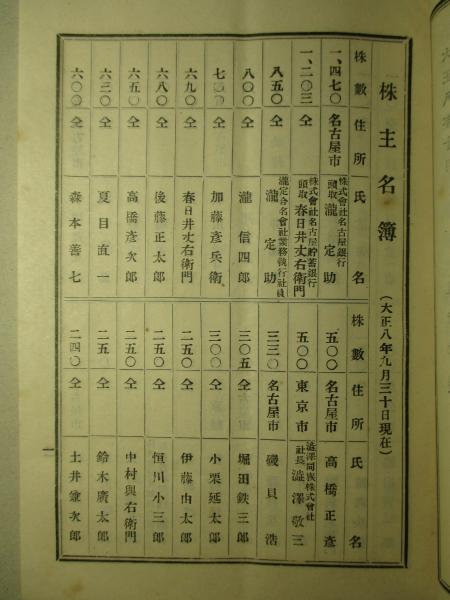 株主名簿 (大正八年九月三十日現在)
株數 住所 氏名
一、四七〇 名古屋市 株式會社名古屋銀行 頭取 瀧定助
一、二〇三 仝 株式會社名古屋貯蓄銀行 頭取 春日井丈右衛門
八五〇 仝 瀧定合名會社業務執行社員 瀧定助
八〇〇 仝 瀧信四郎
七〇〇 仝 加藤彦兵衛
六九〇 仝 春日井丈右衛門
六八〇 仝 後藤正太郎
六五〇 仝 高橋彦次郎
六三〇 仝 夏目直一
六〇〇 仝 森本善七
株數 住所 氏名
五〇〇 名古屋市 高橋正彦
五〇〇 東京市 澁澤同族株式會社 社長 澁澤敬三
三三〇 名古屋市 磯貝浩
三〇五 仝 堀田鉄三郎
三〇〇 仝 小栗延太郎
二五〇 仝 伊藤由太郎
二五〇 仝 恒川小三郎
二五〇 仝 中村與右衛門
二五〇 仝 鈴木廣太郎
二四〇 仝 土井兼次郎
一